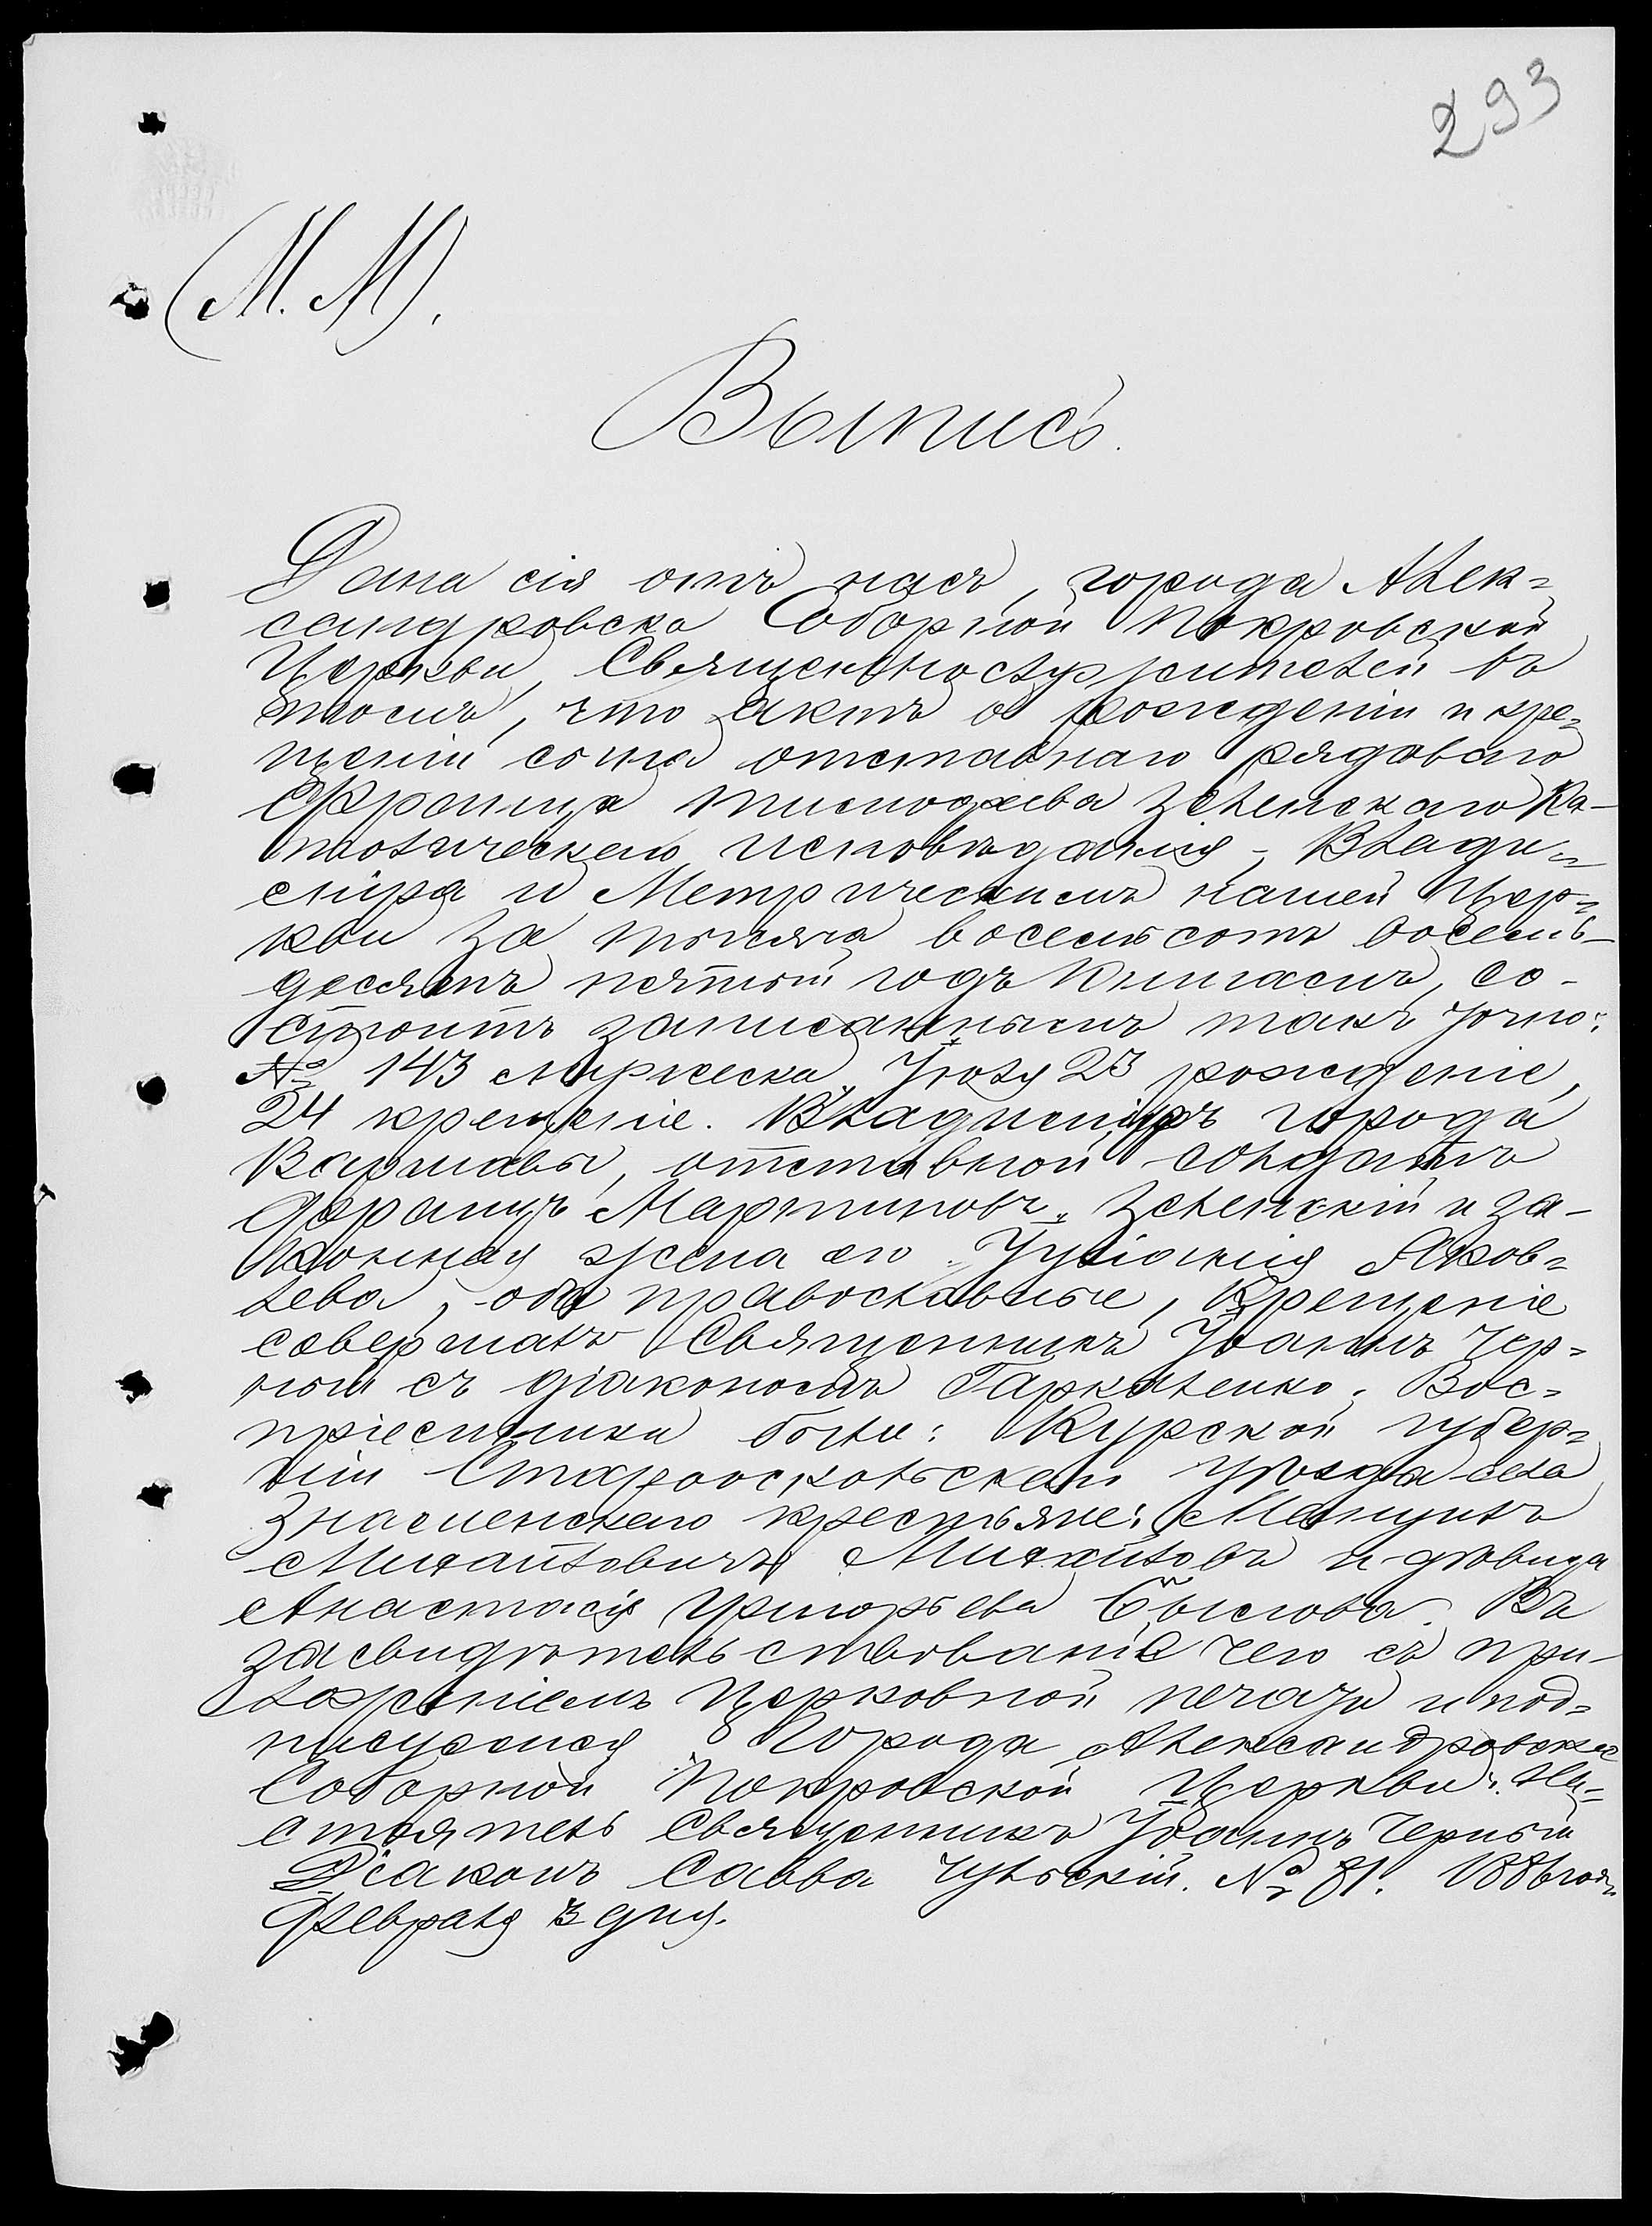 293
(М.М).
Выпись.
Дана сія отъ насъ, города Алек=
сандровска Соборной Покровской
Церкви, Священнослужителей въ
томъ, что актъ о рожденіи и кре=
щеніи сына отставнаго рядоваго
Франца Зеленскаго Ка-
толическаго исповѣданія, - Влади=
міра и Метрическимъ нашей Цер=
кви за тысяча восемьсотъ восемь-
десятъ пятый годъ книгамъ, со-
стоитъ записаннымъ такъ точно:
№ 143 мужеска, Іюля 23 рожденіе,
24 крещеніе. Владиміръ города
Варшавы, отставной солдатъ
Францъ Мартиновъ Зеленскій и за-
конная жена его Іуліанія Яков=
лева, оба православные, Крещеніе
совершалъ Священникъ Іоаннъ Чер=
ный съ діакономъ Гаркавенко. Вос=
пріемники были: Курской губер=
ніи Старооскольскаго уѣзда села
Знаменскаго крестьяне:
Михайловичъ Михайловъ и дѣвица
Анастасія Григорьева Въ
засвидѣтельствованіе чего съ при-
ложеніемъ Церковной печати и под=
писуемся Города Александровска
Соборной Покровской Церкви: На=
стоятель Священникъ Іоаннъ Черный
Діаконъ Савва Чульскій. № 81. 1886 года
Февраля 3 дня.